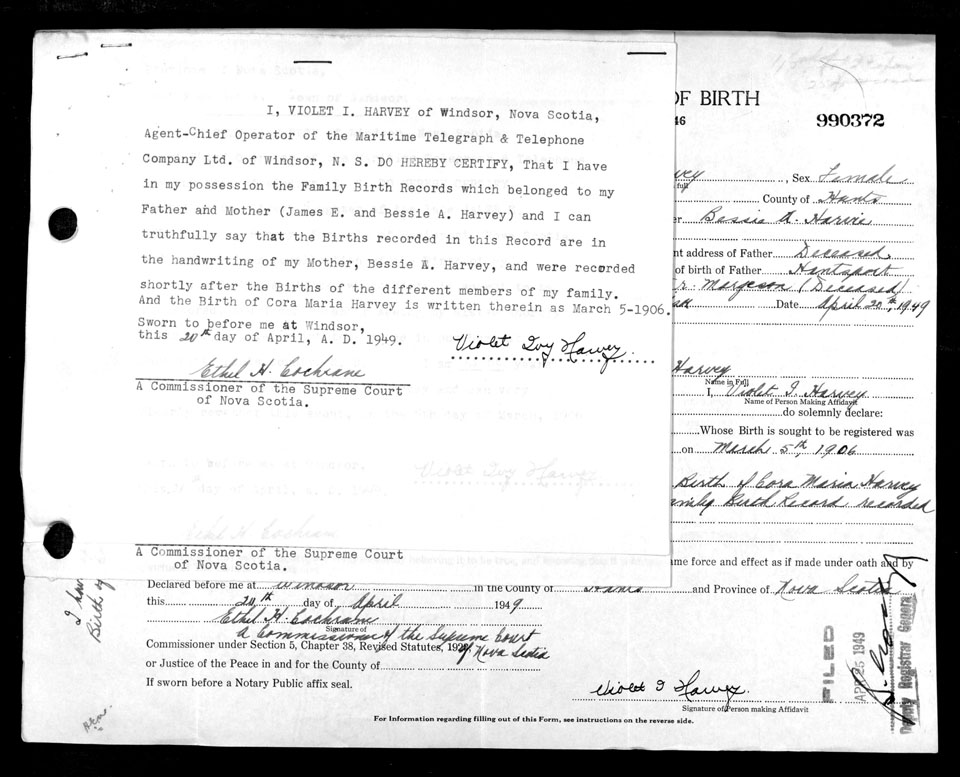 I, VIOLET I. HARVEY of Windsor, Nova Scotia,
Agent-Chief Operator of the Maritime Telegraph & Telephone
Company Ltd. of Windsor, N. S. DO HEREBY CERTIFY, That I have
in my possession the Family Birth Records which belonged to my
Father and Mother (James E. and Bessie A. Harvey) and I can
truthfully say that the Births recorded in this Record are in
the handwriting of my Mother, Bessie A. Harvey, and were recorded
shortly after the Births of the different members of my family.
And the Birth of Cora Maria Harvey is written therein as March 5-1906.
Sworn to before me at Windsor,
this 20th day of April, A. D. 1949.
Violet Ivy Harvey.
Ethel H. Cochrane
A Commissioner of the Supreme Court
of Nova Scotia.
Violet Ivy Harvey
A Commissioner of the Supreme Court
of Nova Scotia.
OF BIRTH
46
990372
vey, Sex Female
full
County of Hants
er Bessie A. Harvie
nt address of Father Deceased
of birth of Father Hantsport
r. Margeson (Deceased)
Date April 20th, 1949
Harvey
Name in Full
I, Violet I. Harvey
Name of Person Making Affidavit
do solemnly declare:
Whose Birth is sought to be registered was
on March 5th, 1906
Birth of Cora Maria Harvey
amily Birth Record recorded
me force and effect as if made under oath and by
Declared before me at Windsor in the County of Hants and Province of Nova Scotia
this 20th day of April 1949
Ethel H. Cochrane
Signature of
A Commissioner of the Supreme Court
Commissioner under Section 5, Chapter 38, Revised Statutes, 192 of Nova Scotia
or Justice of the Peace in and for the County of
If sworn before a Notary Public affix seal.
Violet I Harvey.
Signature of Person making Affidavit
For Information regarding filling out of this Form, see instructions on the reverse side.
I have
Birth of
FILED
APR 25 1949
Deputy Registrar General